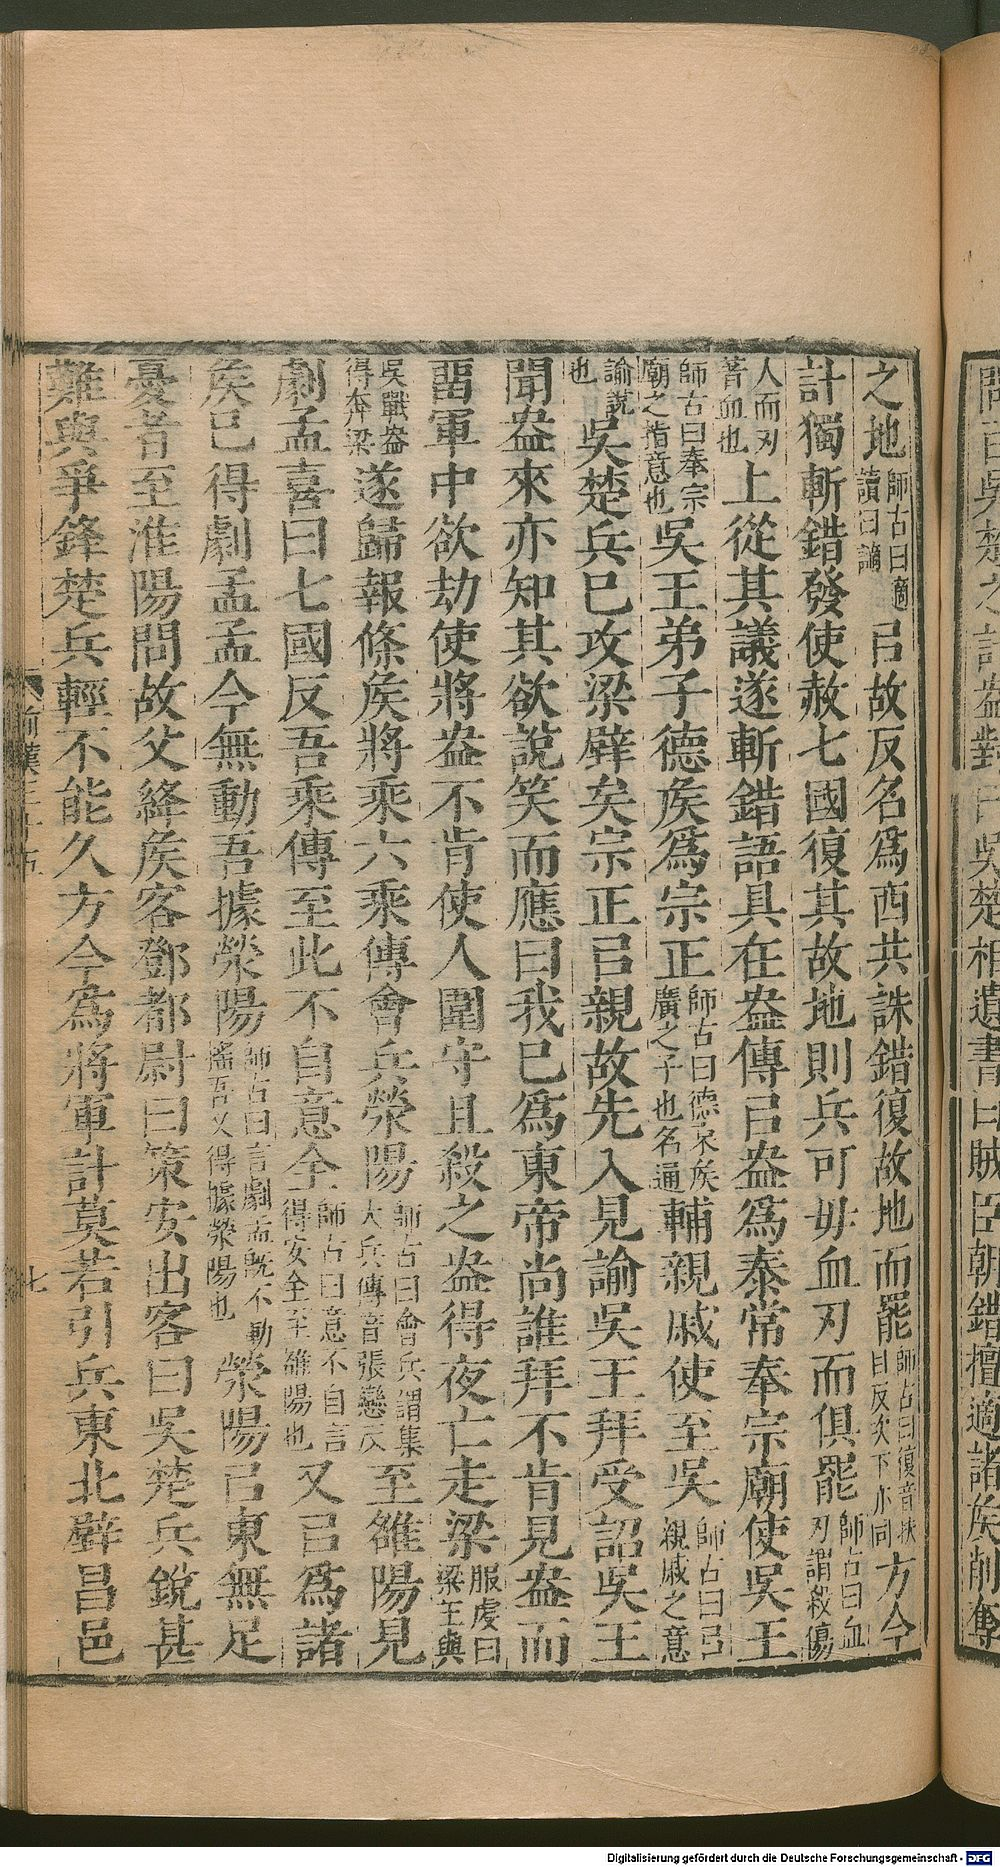 問言吳楚之計盎對曰吳楚相遺書曰賊臣鼂錯擅適諸矦削奪
之地師古曰適讀曰讁㠯故反名爲西共誅錯復故地而罷師古曰復音扶目反次下亦同方今
計獨斬錯發使赦七國復其故地則兵可毋血刃而俱罷師古曰血刃謂殺傷
人而刃著血也上從其議遂斬錯語具在盎傳㠯盎爲泰常奉宗廟使吳王
師古曰奉宗廟之指意也吳王弟子德矦爲宗正師古曰德哀矦廣之子也名通輔親戚使至吳師古曰㠯親戚之意
諭說也吳楚兵巳攻梁壁矣宗正㠯親故先入見諭吳王拜受詔吳王
聞盎來亦知其欲說笑而應曰我巳爲東帝尚誰拜不肯見盎而
畱軍中欲劫使將盎不肯使人圍守且殺之盎得夜亡走梁服虔曰梁王與
吳戰盎得奔梁遂歸報條矦將乘六乘傳會兵滎陽師古曰會兵謂集大兵傳音張戀反至雒陽見
劇孟喜曰七國反吾乘傳至此不自意全師古曰意不自言得安全至雒陽也又㠯爲諸
矦巳得劇孟孟今無動吾據滎陽師古曰言劇孟旣不動搖吾又得據滎陽也滎陽㠯東無足
憂者至淮陽問故父絳矦客鄧都尉曰策安出客曰吳楚兵銳甚
難與爭鋒楚兵輕不能久方今爲將軍計莫若引兵東北壁昌邑
前漢三十五
七
Digitalisierung gefördert durch die Deutsche Forschungsgemeinschaft - DFG